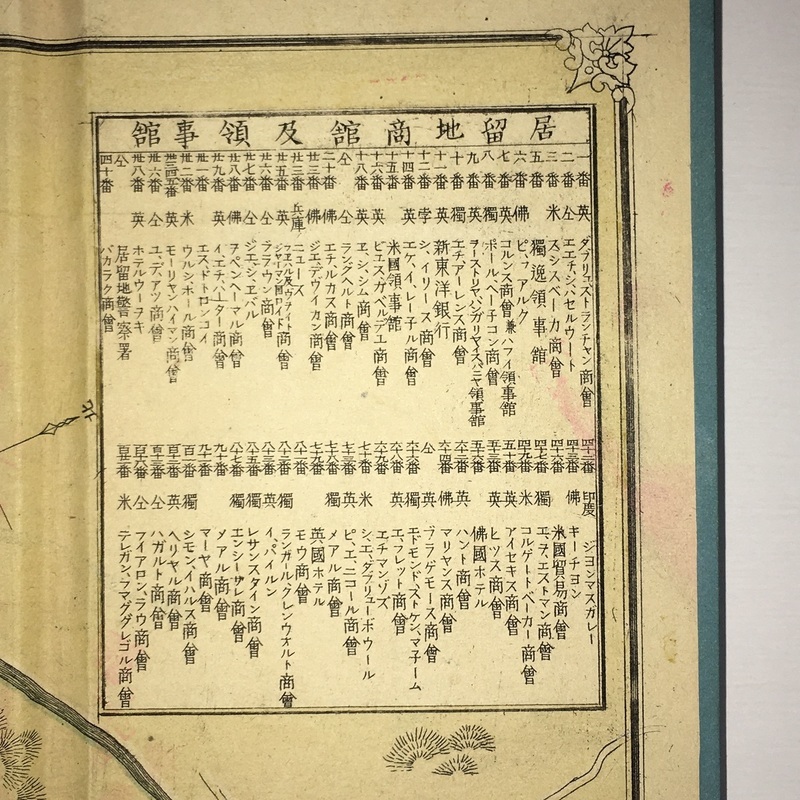 居留地商館及領事館
一番 英 ダブリュストランチャン商會
二番 仝 エエチ、シ、ハセルウート
三番 米 スシスベーカ商會
五番 獨逸領事館
六番 佛 ピ、フアルク
七番 英 コルンス商會兼ハフイ領事館
八番 獨 ポールヘーチコン商會
九番 英
十番 獨 エチアーレンス商會
十一番 英 新東洋銀行
十二番 孛 シ、イリース商會
十四番 英 エケイ、レー子ル商會
十五番 米國領事館
十六番 英 ビエス、ガベルデエ商會
十八番 英 エ、シ、シム商會
仝 仝 ラングヘルト商會
二十番 佛 エチルカス商會
廿三番 佛 ジエ、デヴイカン商會
廿三番 兵庫ニユース
廿五番 英
廿六番 仝 ララウン商會
廿七番 仝 ジエシ、エバル
廿八番 佛 ヲペンヘーマル商會
廿九番 英 イ、エチ、ハーター商會
卅一番 エス、ドトロンコイ
卅二番 米 ウルシ、ポール商會
英 モーリヤンハイマン商會
卅六番 仝 ユ、デ、アツ商會
卅八番 英 ホテルウーヲキ
仝 居留地警察署
四十番 バカラク商會
四十二番 印度 ジヨンマスガレー
四十三番 佛 キーチヨン
四十六番 米國貿易商會
四十七番 獨 エ、ヲ、エストマン商會
四十九番 米 コルゲートベーカー商會
五十番 英 アイセキス商會
五十三番 英 ヒツス商會
五十六番 佛國ホテル
六十三番 英 ハント商會
六十四番 佛 マリヤンス商會
仝 英 ブラゲモース商會
六十六番 獨 エドモンド、ストケン、マ子ーム
六十八番 英 エ、フレツト商會
六十九番 エ、チマン、ゾズ
七十番 米 シ、エ、ダブリユーボウール
七十三番 英 ピ、エ、ニコール商會
七十六番 獨 メアル商會
七十九番 英國ホテル
八十一番 モウ商會
八十三番 獨 ランガール、クレンウオルト商會
八十三番 英 イ、バイルン
八十五番 獨 レサンスタイン商會
八十七番 獨 エンシー、ザレ商會
九十番 メアル商會
九十一番 マーヤ商會
百一番 獨 シモン、イハルス商會
百十二番 英 ヘリヤル商會
百十三番 仝 ハガルト商會
百十六番 仝 フイアロン、ラウ商會
米 テレガン、フマ、ググレゴル商會
北